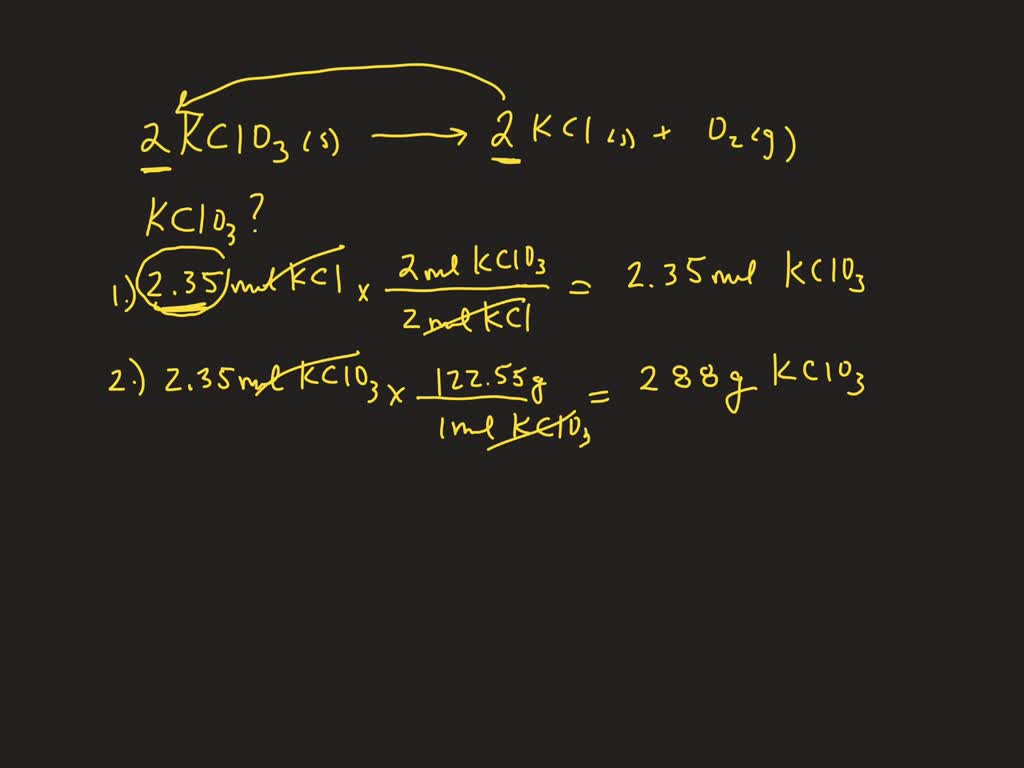 2KClO₃(s) → 2KCl(s) + O₂(g)
KClO₃?
1.) 2.35 mol KCl × 2 mol KClO₃ / 2 mol KCl = 2.35 mol KClO₃
2.) 2.35 mol KClO₃ × 122.55g / 1 mol KClO₃ = 288g KClO₃